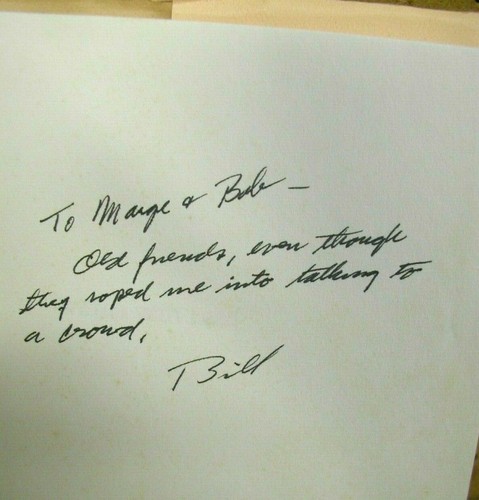 To Marge & Bob —
Old friends, even though
they roped me into talking to
a crowd.
Bill